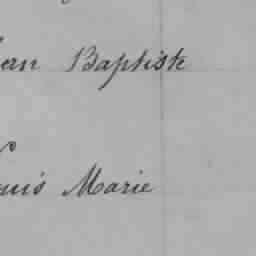 ean Baptiste
ouis Marie